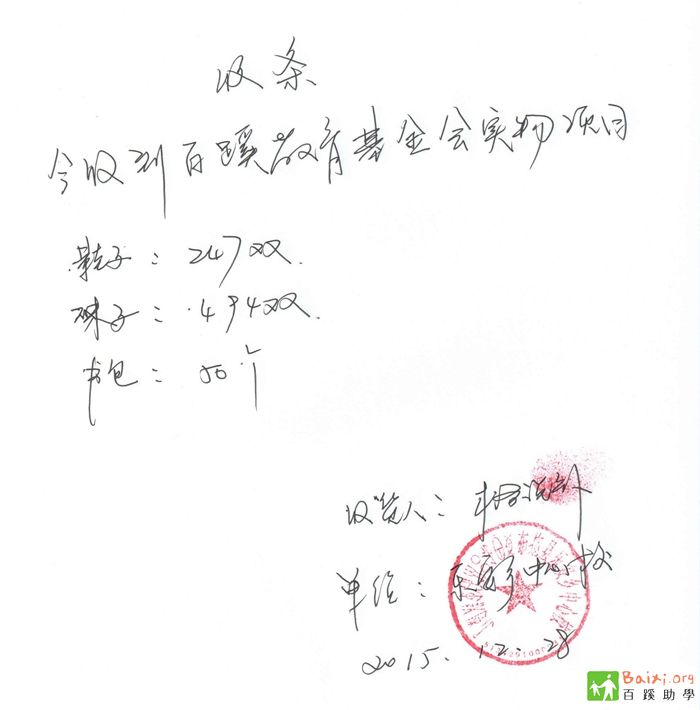 收条
今收到百蹊教育基金会实物项目
鞋子：247双.
袜子：494双.
书包：50个
收货人：
单位：中心校
2015.12.28
Baixi.org
百蹊助學